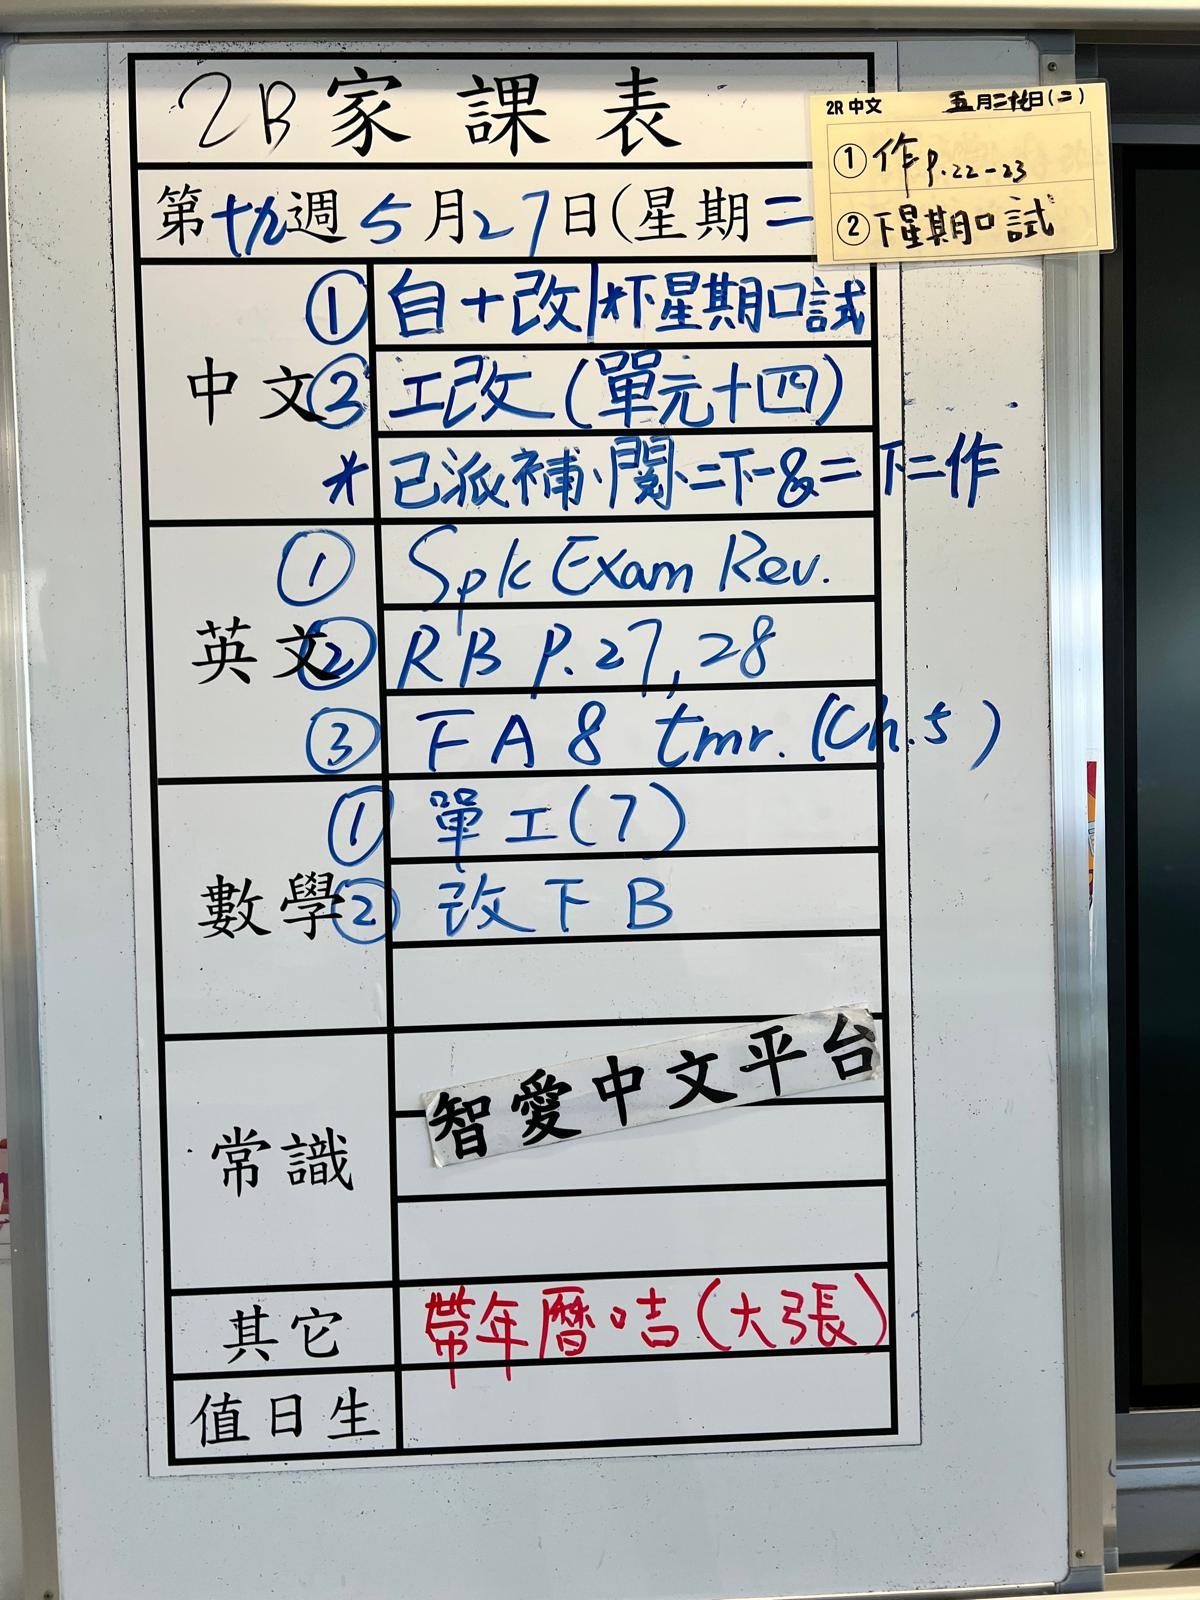 2B家課表
第十九週5月27日(星期二
2R 中文 五月二十七日(二)
①作p.22-23
②下星期口試
中文
①自+改|*下星期口試
②工改(單元十四)
*已派補、閱二下一&二下二作
英文
①Spk Exam Rev.
②RB P.27,28
③FA8 tmr.(Ch.5)
數學
①單工(7)
②改下B
常識
智愛中文平台
其它
帶年曆咭(大張)
值日生